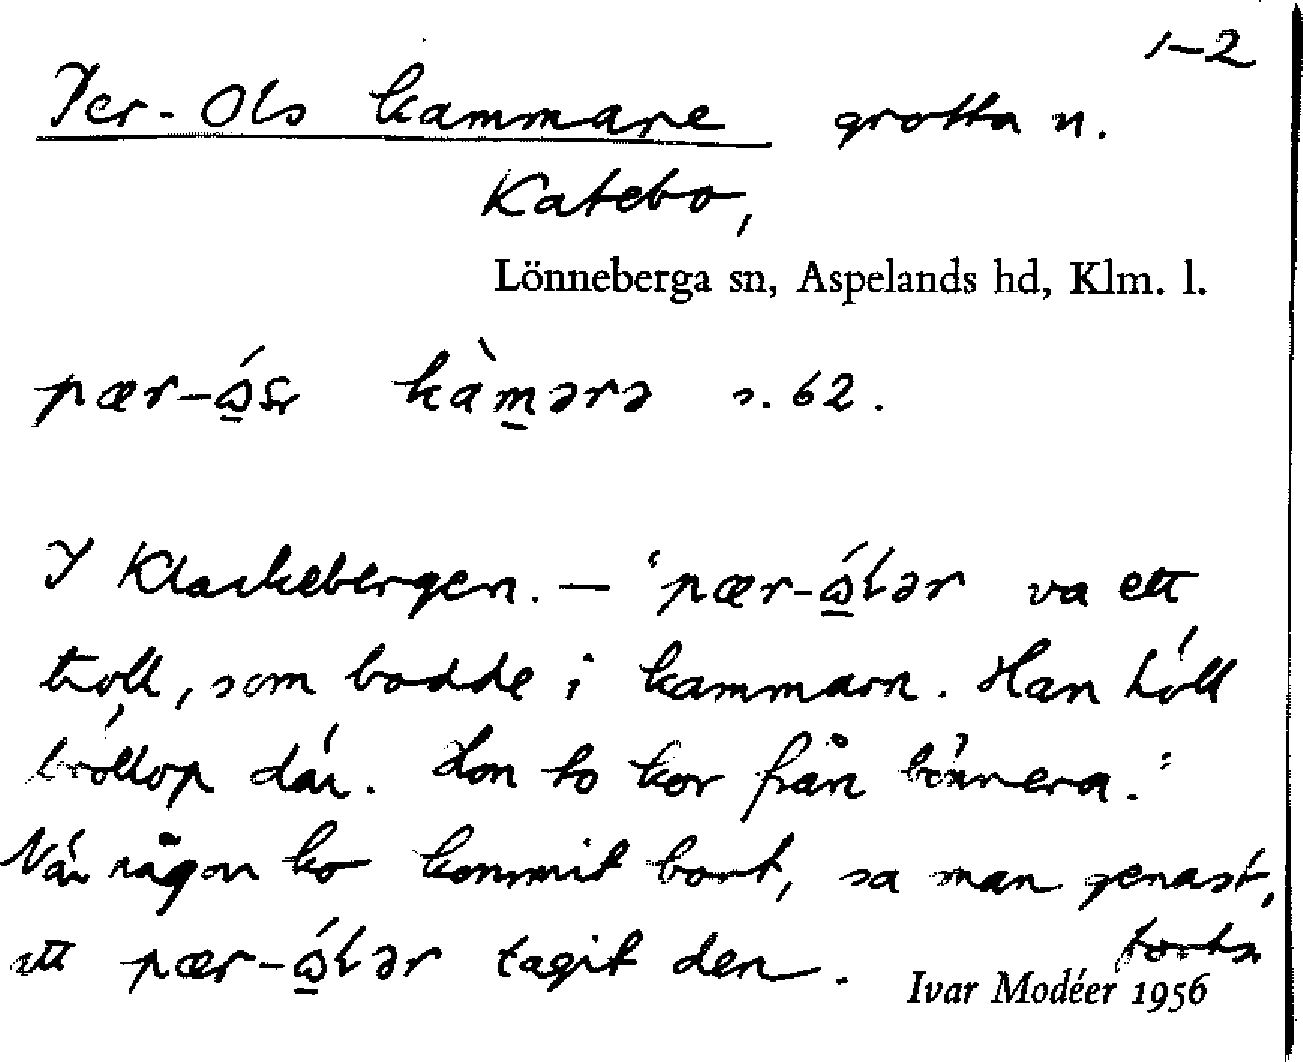 1-2
Per-Ols kammare grotta n.
Katebo,
Lönneberga sn, Aspelands hd, Klm. l.
pær- kàmərə s. 62.
I Klackebergen. — 'pær-ώ̲lər va ett
troll, som bodde i kammarn. Han höll
bröllop där. Hon to kor från bönnera.'
När någon ko kommit bort, sa man genast,
att pær-ώ̲lər tagit den.
forts.
Ivar Modéer 1956